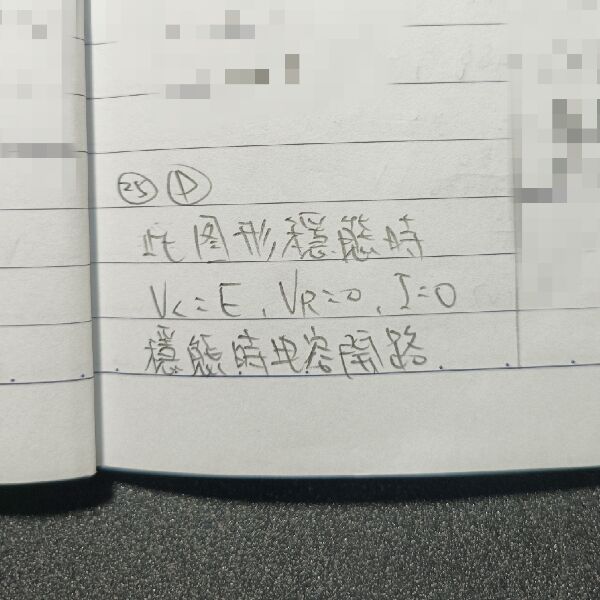 ㉕ Ⓓ
此图形穩態時
Vc=E, VR=0, I=0
穩態時电容開路